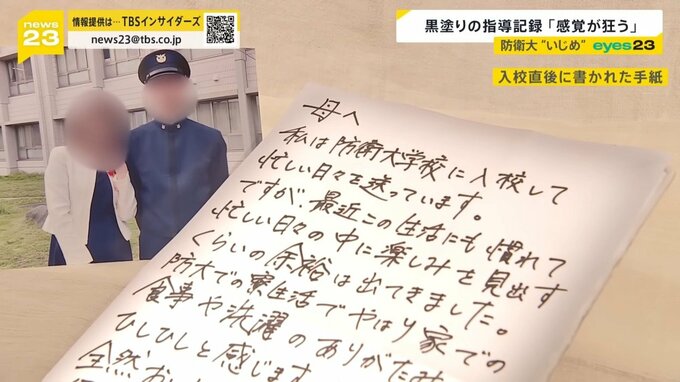 news23
情報提供は…TBSインサイダーズ
news23@tbs.co.jp
黒塗りの指導記録「感覚が狂う」
防衛大"いじめ" eyes23
入校直後に書かれた手紙
母へ
私は防衛大学校に入校して
忙しい日々を送っています。
ですが、最近この生活にも慣れて
忙しい日々の中に楽しみを見出す
くらいの余裕は出てきました。
防大での寮生活でやはり家での
食事や洗濯のありがたみ
ひしひしと感じます
全然お